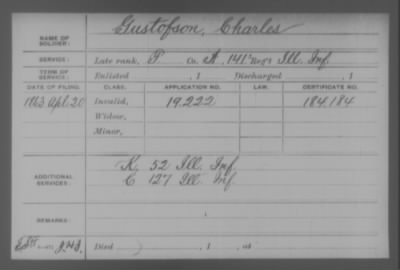 NAME OF SOLDIER: Gustofson, Charles
SERVICE: Late rank, P. Co. A. 141" Reg't Ill. Inf.
TERM OF SERVICE: Enlisted , 1 Discharged , 1
DATE OF FILING. CLASS. APPLICATION NO. LAW. CERTIFICATE NO.
1863 Apl. 20 Invalid, 19.222 184.184
Widow,
Minor,
ADDITIONAL SERVICES: K. 52 Ill. Inf.
C 127 Ill. Inf.
REMARKS:
Died , 1 , at